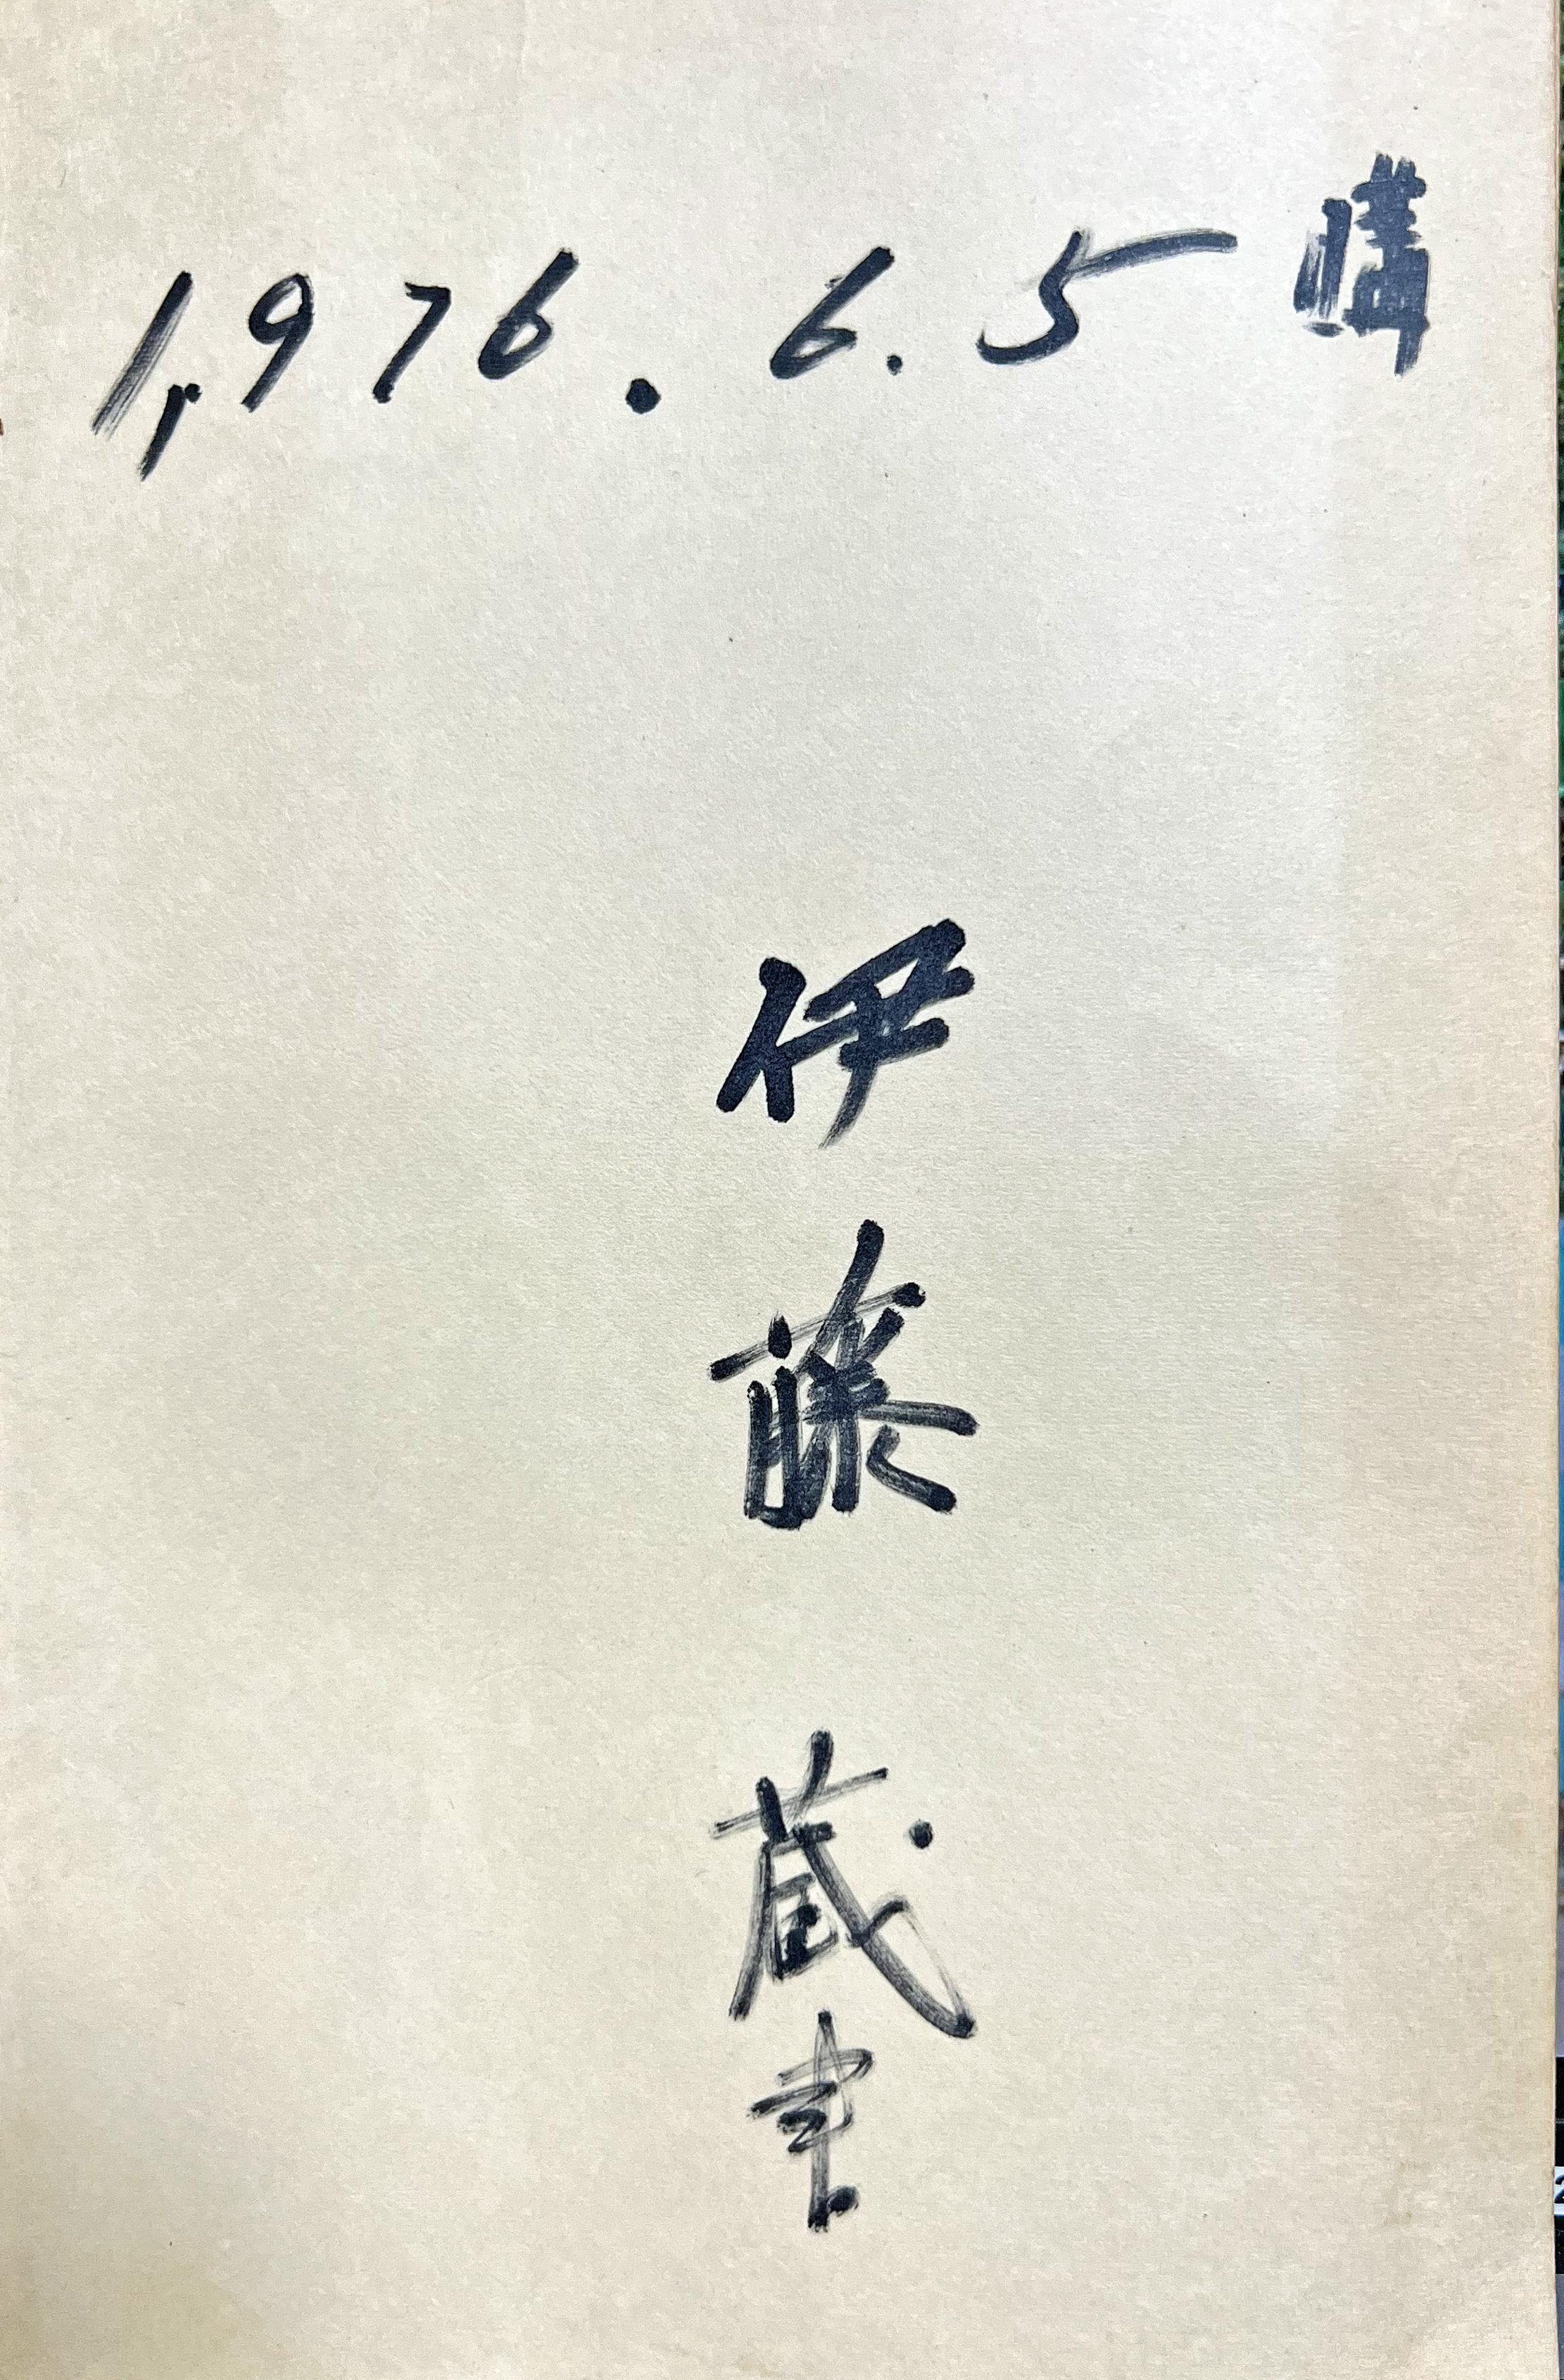 1,976.6.5 購
伊藤 蔵書